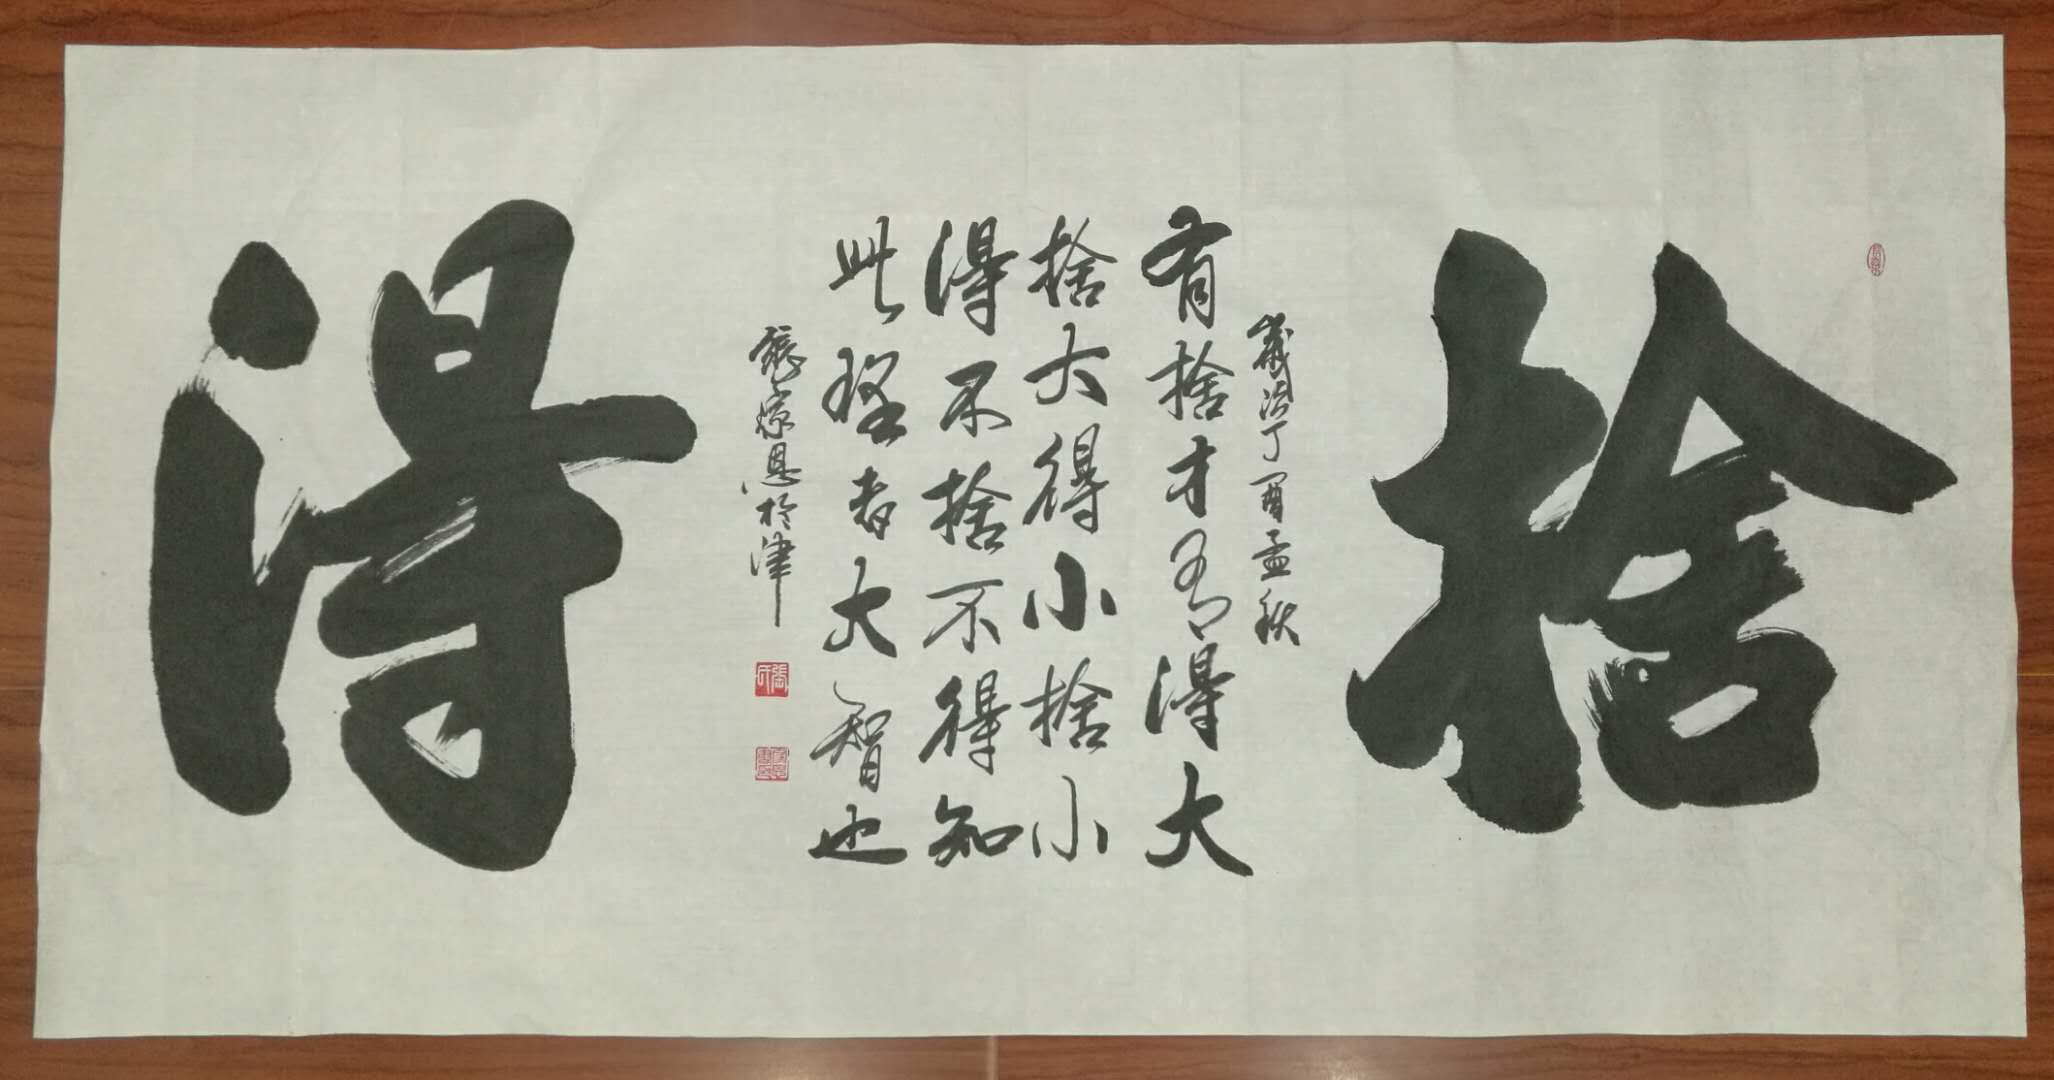 捨
歲次丁酉孟秋
有捨才有得大
捨大得小捨小
得不捨不得知
此理者大智也
張家恩於津
張氏
得